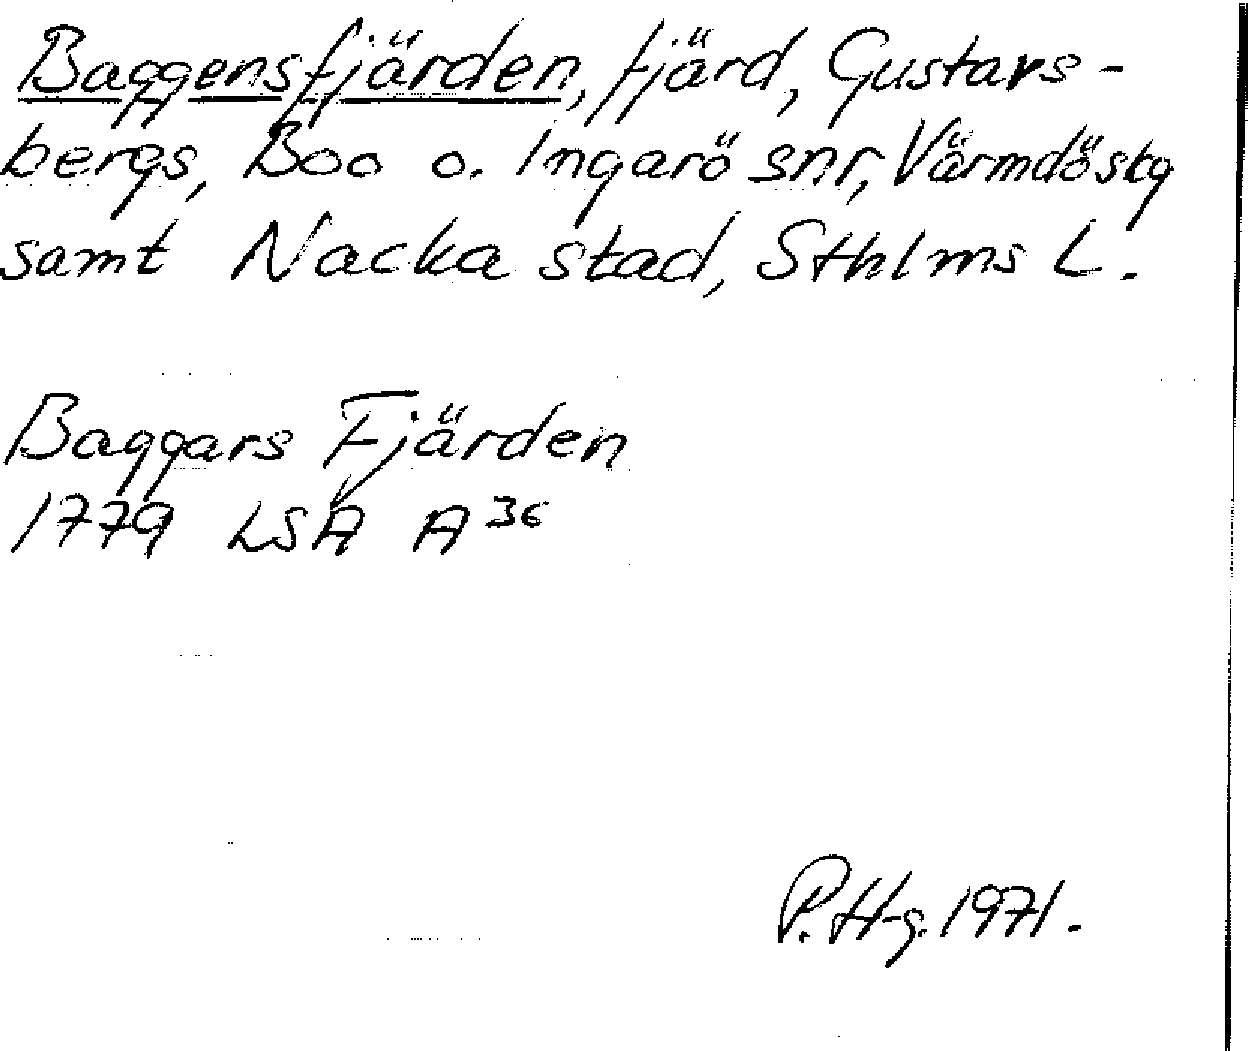 Baggensfjärden, fjärd, Gustavs-
bergs, Boo o. Ingarö snr, Värmdö skg
samt Nacka stad, Sthlms L.
Baggars Fjärden
1779 LSA A 36
P.Hg. 1971.